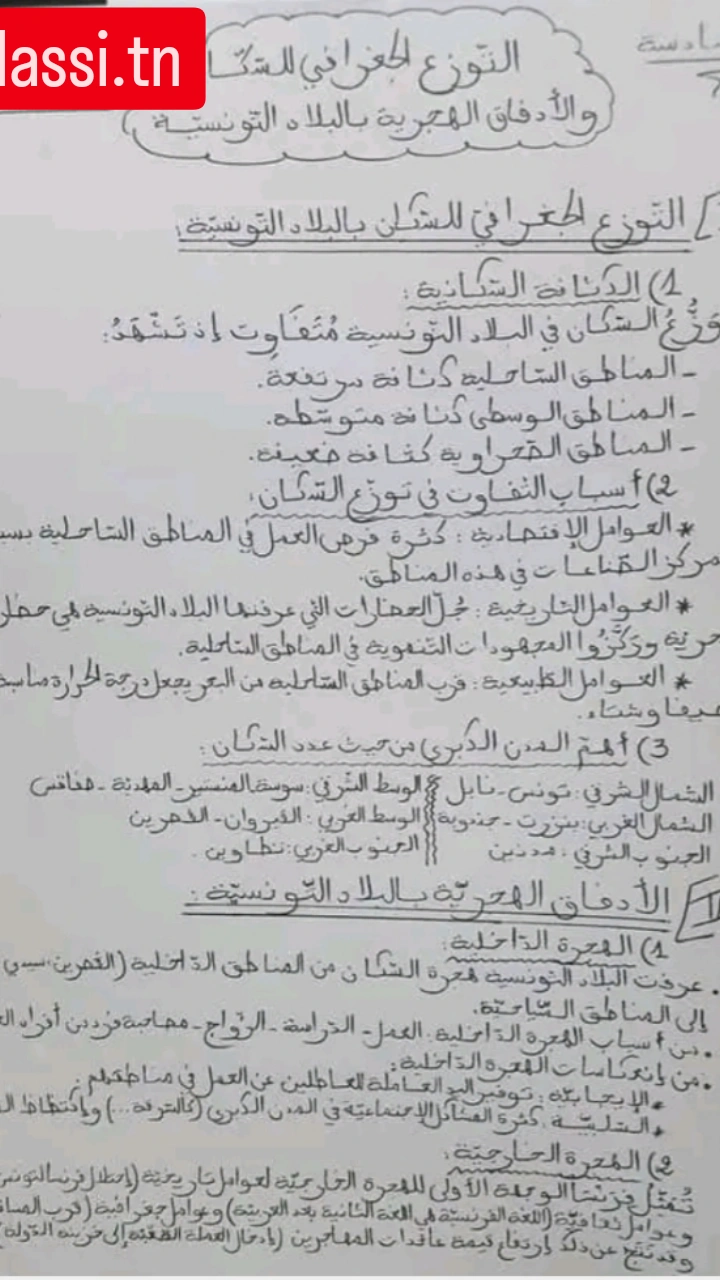 lassi.tn
سادسة
التّوزع الجغرافي للسّكّا
والأدفاق الهجرية بالبلاد التّونسيّة
I التّوزع الجغرافي للسّكان بالبلاد التّونسيّة:
1) الكثافة السّكانية:
وَزُّعُ السّكان في البلاد التّونسية مُتَفَاوِت إذ تَشْهَدُ:
- المناطق السّاحلية كثافة مرتفعة.
- المناطق الوسطى كثافة متوسّطة.
- المناطق الصّحراوية كثافة ضعيفة.
2) أسباب التّفاوت في توزّع السّكان:
* العوامل الإقتصادية: كثرة فرص العمل في المناطق السّاحلية بسب
مركز الصّناعات في هذه المناطق.
* العوامل التاريخية: جُلّ الحضارات التي عرفتها البلاد التونسية هي حضار
حرية وركَّزُوا المجهودات التّنموية في المناطق السّاحلية.
* العوامل الطّبيعية: قرب المناطق السّاحلية من البحر يجعل درجة الحرارة مناسبة
صيفا وشتاء.
3) أهمّ المدن الكبرى من حيث عدد السّكان:
الشمال الشرقي: تونس - نابل
الوسط الشرقي: سوسة المنستير - المهديّة - صفاقس
الشمال الغربي: بنزرت - جندوبة
الوسط الغربي: القيروان - القصرين
الجنوب الشرقي: مدنين
الجنوب الغربي: تطاوين.
II الأدفاق الهجريّة بالبلاد التّونسيّة:
1) الهجرة الدّاخلية:
. عرفت البلاد التونسية هجرة السّكان من المناطق الدّاخلية (القصرين، سيدي
إلى المناطق السّاحليّة.
. من أسباب الهجرة الدّاخلية: العمل - الدّراسة - الزّواج - مصاحبة فرد من أفراد الع
. من إنعكاسات الهجرة الدّاخلية:
* الإيجابيّة: توفير اليد العاملة للعاطلين عن العمل في مناطقهم.
* السّلبيّة: كثرة المشاكل الإجتماعيّة في المدن الكبرى (كالسّرقة ...) وإكتظاظ ال
2) الهجرة الخارجيّة:
تُمَثِّل فَرَنْسَا الوجهة الأولى للهجرة الخارجيّة لعوامل تاريخيّة (إحتلال فرنسا لتونس
وعوامل ثقافيّة (اللغة الفرنسيّة هي اللغة الثانية بعد العربيّة) وعوامل جغرافية (قرب المسا
وقد نتج عن ذلك إرتفاع قيمة عائدات المهاجرين (بإدخال العملة الصّعبة إلى خزينة الدّولة)